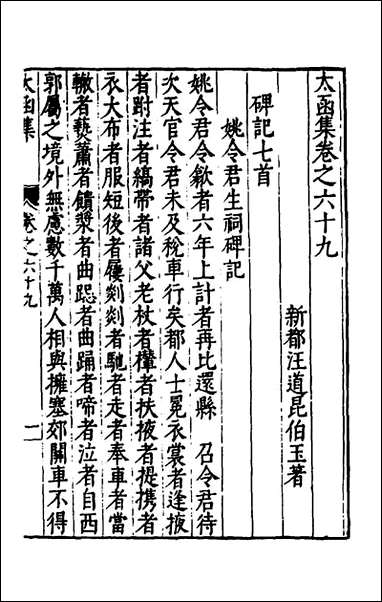 太函集卷之六十九
新都汪道昆伯玉著
碑記七首
姚令君生祠碑記
姚令君令歙者六年上計者再比還縣　召令君待
次天官令君未及稅車行矣都人士冕衣裳者逢掖
者跗注者縞帶者諸父老杖者𣝛者扶掖者提携者
衣大布者服短後者屨剡剡者馳者走者奉車者當
轍者爇蕭者饋漿者曲跽者曲踊者啼者泣者自西
郭屬之境外無慮數千萬人相與擁塞郊關車不得
太函集
卷之六十九
一